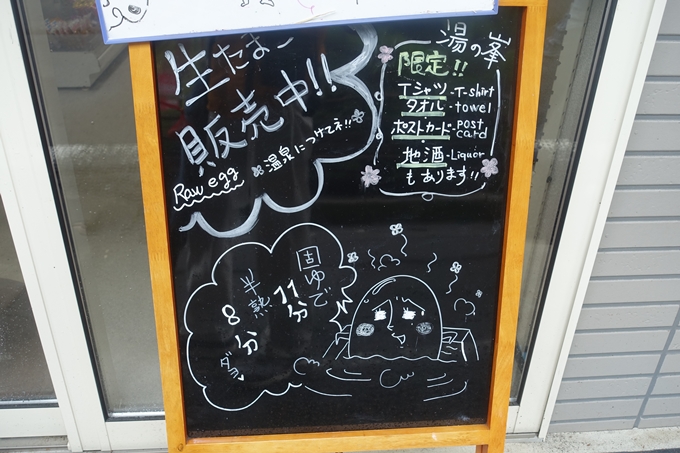 生たまご
販売中!!
Raw egg
温泉につけてネ!!
湯の峯
限定!!
Tシャツ - T-shirt
タオル - towel
ポストカード - post card
地酒 - Liquor
もあります!!
固ゆで
11分
半熟
8分
ダヨ